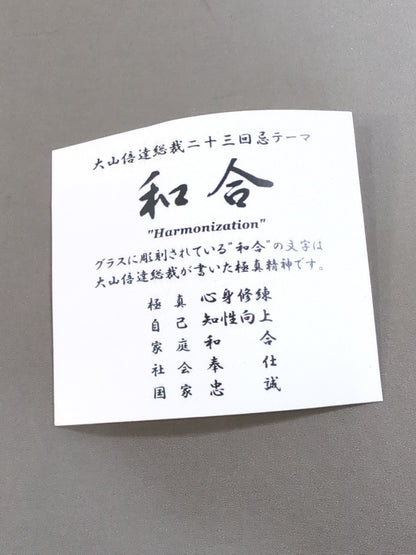 大山倍達総裁二十三回忌テーマ
和合
"Harmonization"
グラスに彫刻されている"和合"の文字は
大山倍達総裁が書いた極真精神です。
極真 心身修練
自己 知性向上
家庭 和合
社会 奉仕
国家 忠誠